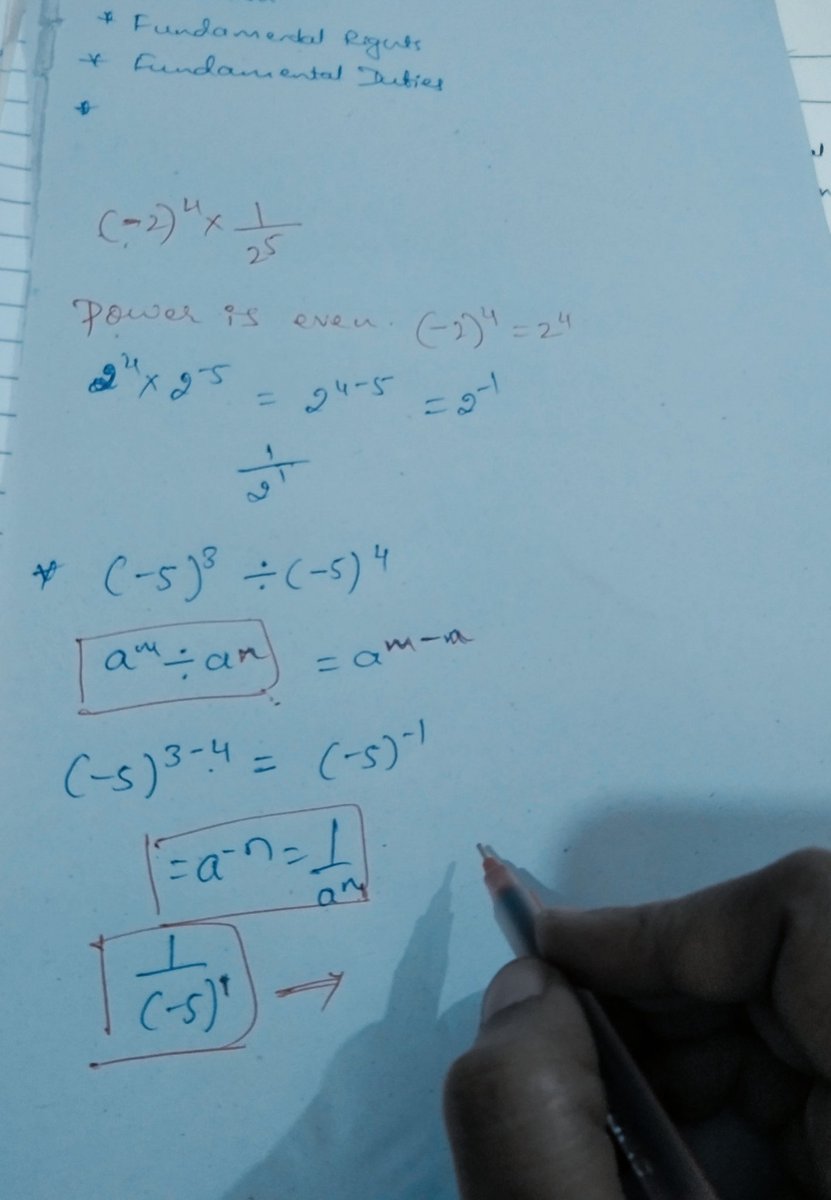 * Fundamental Rights
* Fundamental Duties
*
(-2)⁴ × 1/2⁵
Power is even. (-2)⁴ = 2⁴
2⁴ × 2⁻⁵ = 2⁴⁻⁵ = 2⁻¹
1/2¹
* (-5)³ ÷ (-5)⁴
aᵐ ÷ aⁿ = aᵐ⁻ⁿ
(-5)³⁻⁴ = (-5)⁻¹
= a⁻ⁿ = 1/aⁿ
1/(-5)¹ →